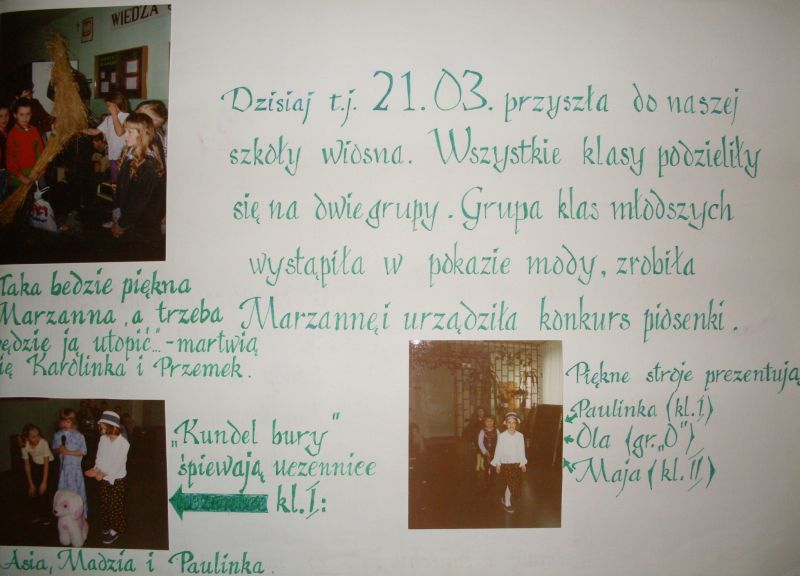 WIEDZA
Dzisiaj t.j. 21.03. przyszła do naszej
szkoły wiosna. Wszystkie klasy podzieliły
się na dwie grupy. Grupa klas młodszych
wystąpiła w pokazie mody, zrobiła
Marzannę i urządziła konkurs piosenki.
Taka bedzie piękna
Marzanna, a trzeba
będzie ją utopić..."-martwią
się Karolinka i Przemek.
„Kundel bury"
śpiewają uczennice
kl. I:
Asia, Madzia i Paulinka.
Piękne stroje prezentują
Paulinka (kl. I)
Ola (gr. „0")
Maja (kl. II)